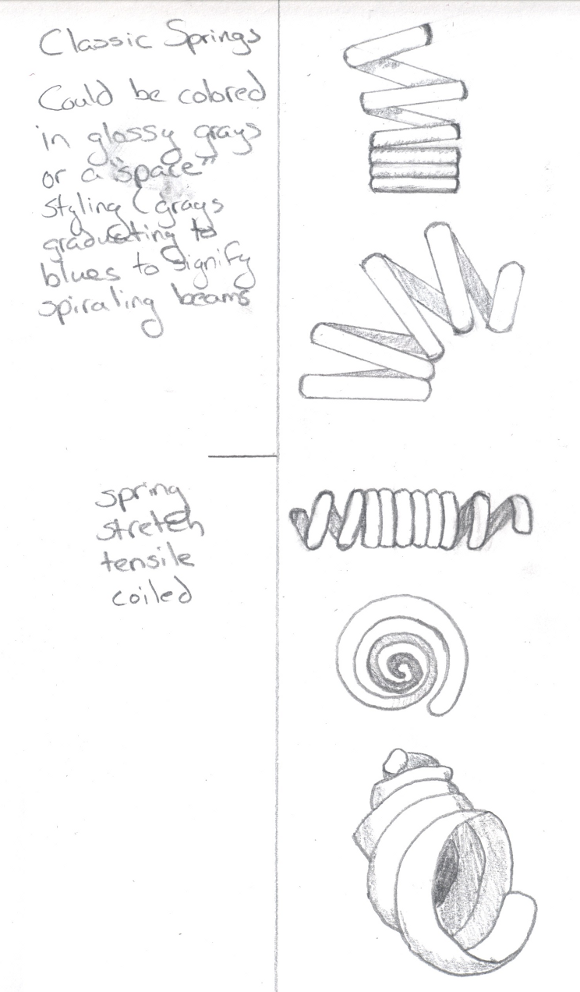 Classic Springs
Could be colored
in glossy grays
or a "space"
styling (grays
graduating to
blues to signify
spiraling beams
spring
stretch
tensile
coiled